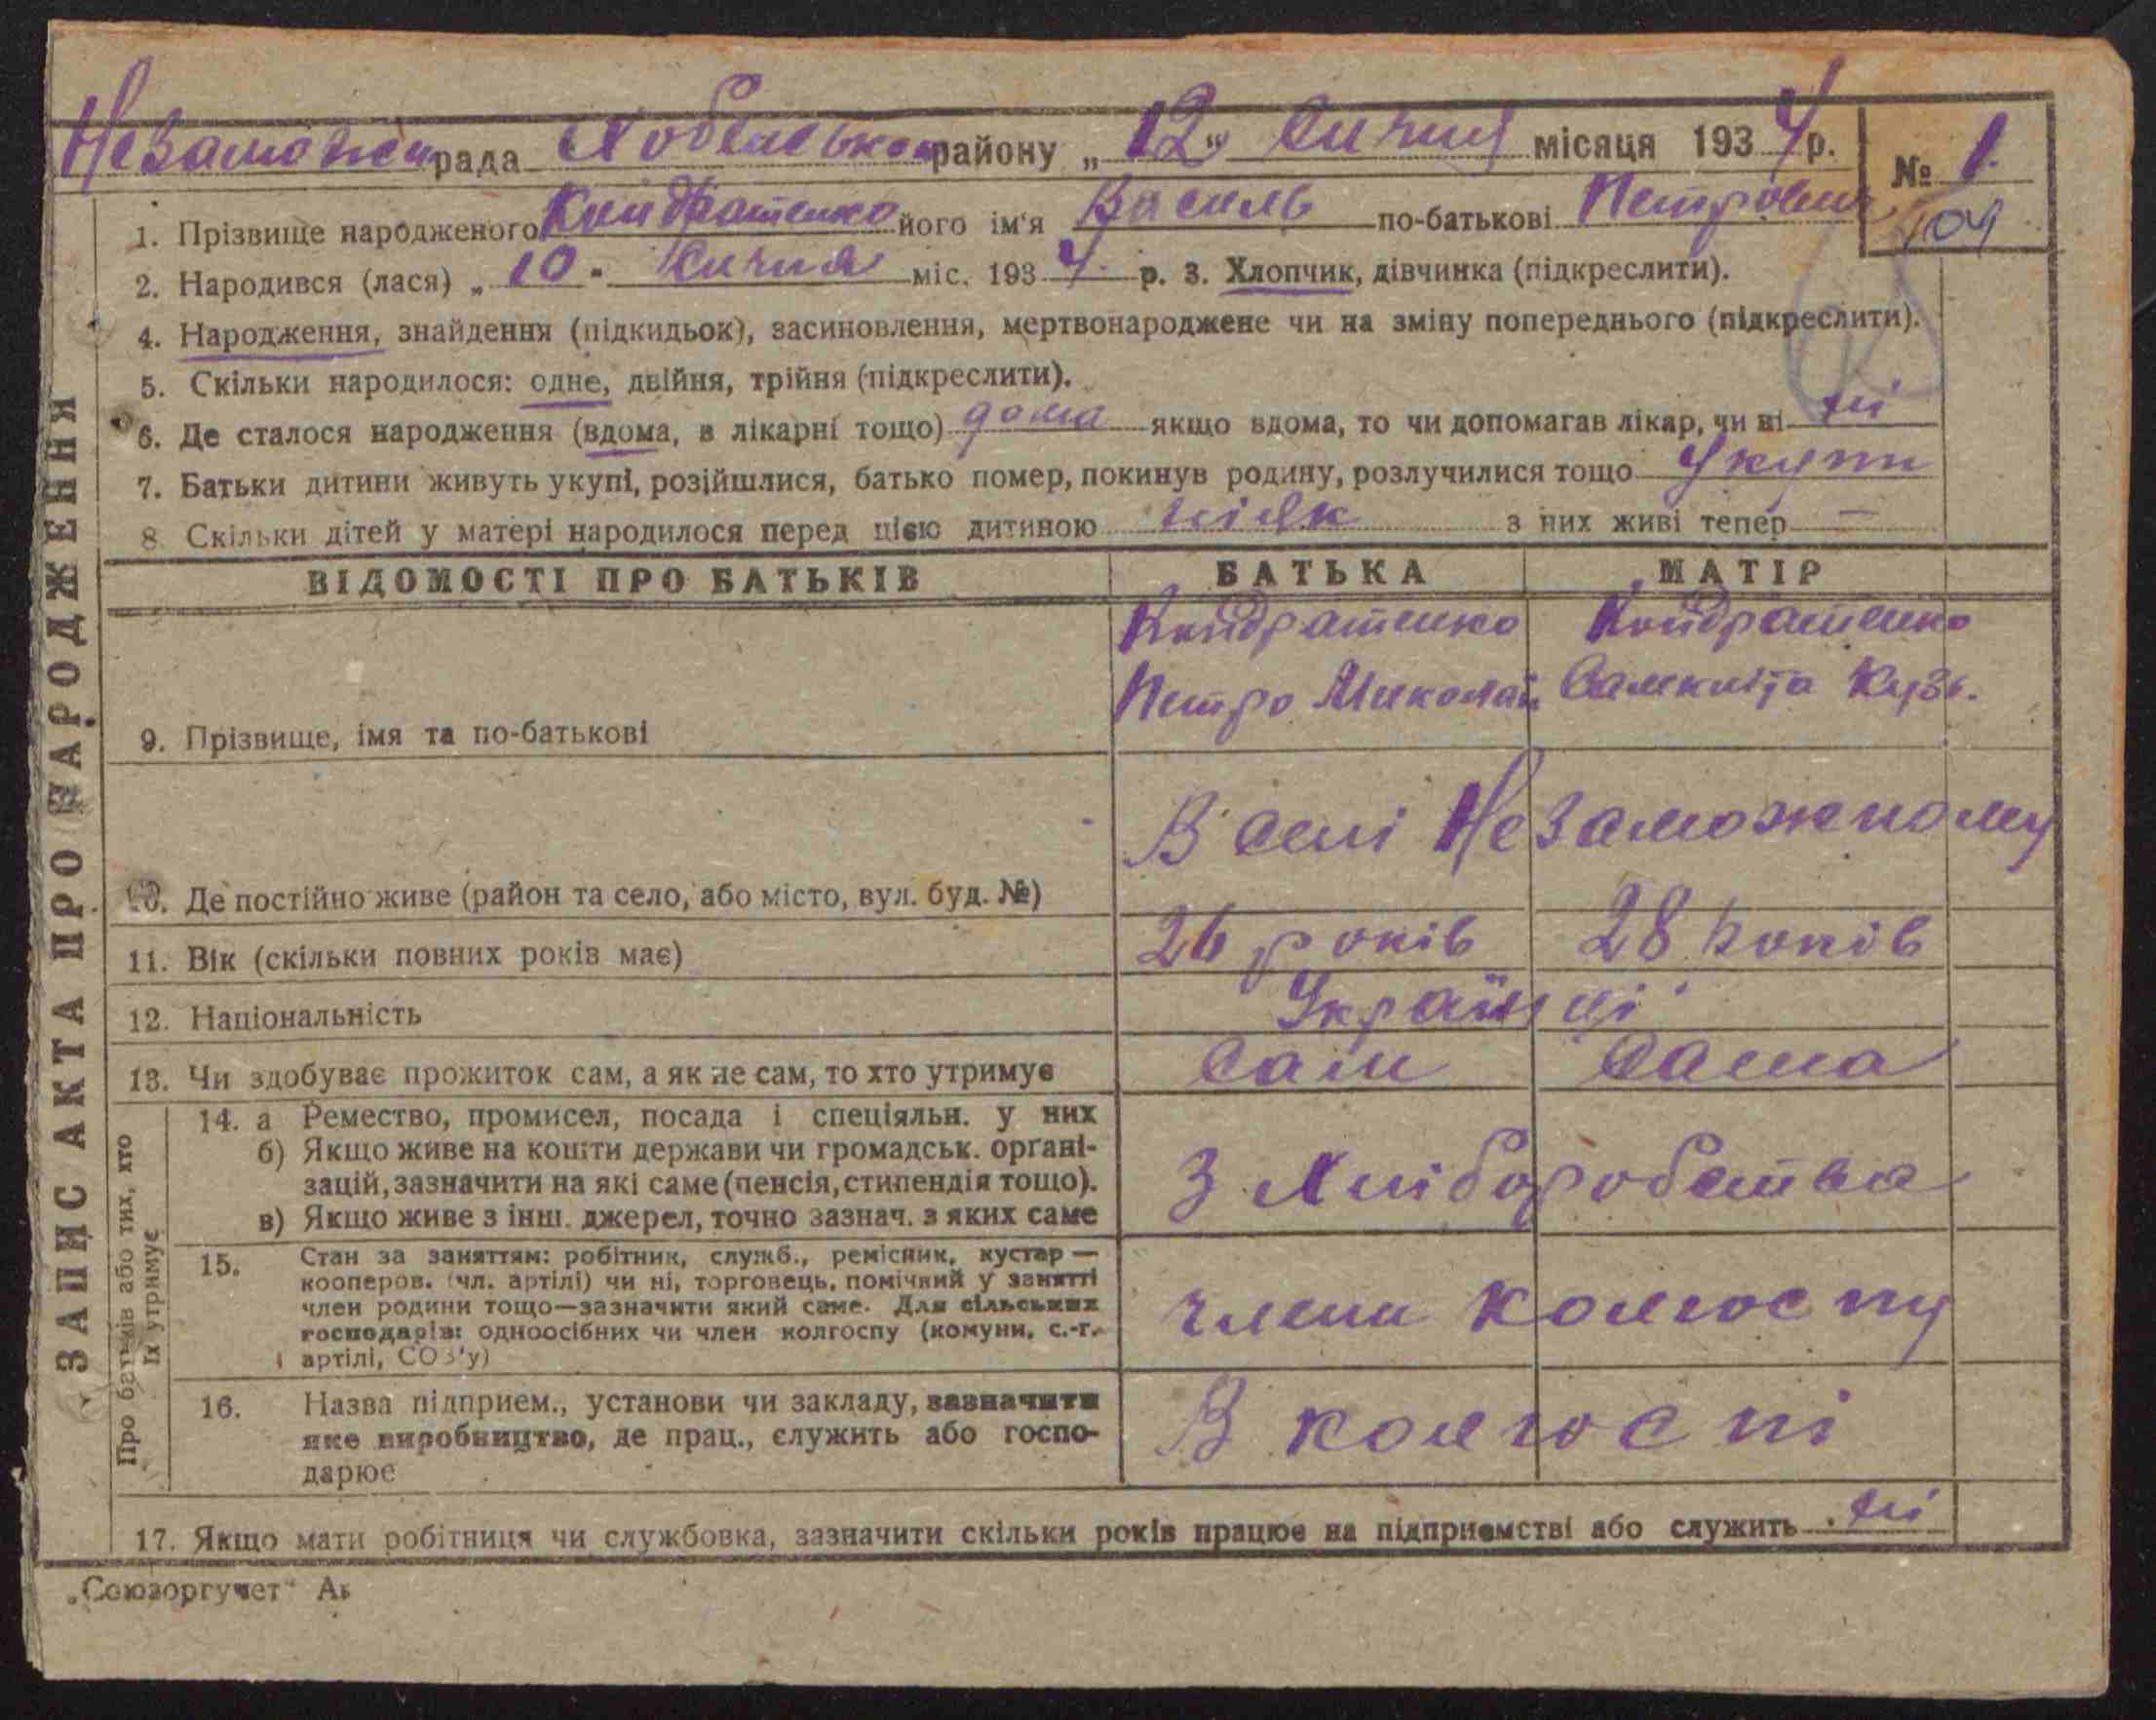 Незаможн рада Лобельсько району „12" Січня місяця 1934 р. № 1.
104
1. Прізвище народженого Кондратенко його ім'я Василь по-батькові Петрович
2. Народився (лася) „10" Січня міс. 1934 р. 3. Хлопчик, дівчинка (підкреслити).
4. Народження, знайдення (підкидьок), засиновлення, мертвонароджене чи на зміну попереднього (підкреслити).
5. Скільки народилося: одне, двійня, трійня (підкреслити).
6. Де сталося народження (вдома, в лікарні тощо) дома якщо вдома, то чи допомагав лікар, чи ні ні
7. Батьки дитини живуть укупі, розійшлися, батько помер, покинув родину, розлучилися тощо Укупі
8. Скільки дітей у матері народилося перед цією дитиною ніяк з них живі тепер —
ЗАПИС АКТА ПРО НАРОДЖЕННЯ
ВІДОМОСТІ ПРО БАТЬКІВ БАТЬКА МАТІР
9. Прізвище, імя та по-батькові
Кондратенко Кондратенко
Петро Миколай Кузь.
10. Де постійно живе (район та село, або місто, вул. буд. №) В селі Незаможному
11. Вік (скільки повних років має) 26 років 28 років
12. Національність Українці
13. Чи здобуває прожиток сам, а як не сам, то хто утримує Сам Сама
Про батьків або тих, хто їх утримує
14. а Ремество, промисел, посада і спеціяльн. у них
б) Якщо живе на кошти держави чи громадськ. органі-
зацій, зазначити на які саме (пенсія, стипендія тощо).
в) Якщо живе з інш. джерел, точно зазнач. з яких саме
З Хліборобства
15. Стан за заняттям: робітник, служб., ремісник, кустар —
кооперов. (чл. артілі) чи ні, торговець, помічний у занятті
член родини тощо—зазначити який саме. Для сільських
господарів: одноосібних чи член колгоспу (комуни, с.-г.
артілі, СОЗ'у)
члени колгоспу
16. Назва підприєм., установи чи закладу, зазначити
яке виробництво, де прац., служить або госпо-
дарює
В колгоспі
17. Якщо мати робітниця чи службовка, зазначити скільки років працює на підприємстві або служить ні
„Союзоргучет"